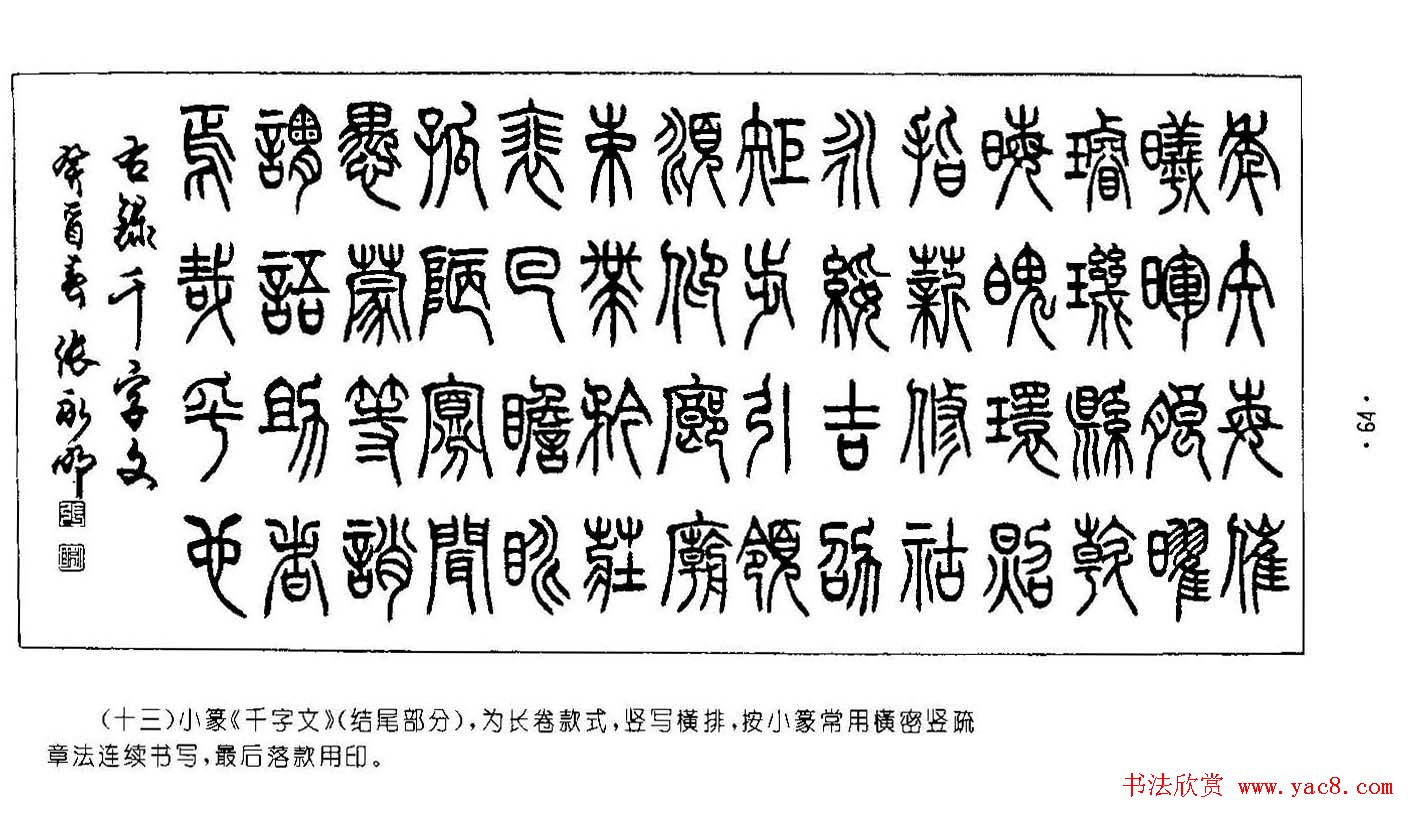 年矢每催
曦暉朖曜
璿璣縣斡
晦魄環照
指薪修祜
永綏吉劭
矩步引領
頫仰廊廟
束帶矜莊
裵回瞻眺
孤陋寡聞
愚蒙等誚
謂語助者
焉哉乎也
右錄千字文
癸酉春 张永明
·64·
(十三)小篆《千字文》(结尾部分),为长卷款式,竖写横排,按小篆常用横密竖疏
章法连续书写,最后落款用印。
书法欣赏 www.yac8.com